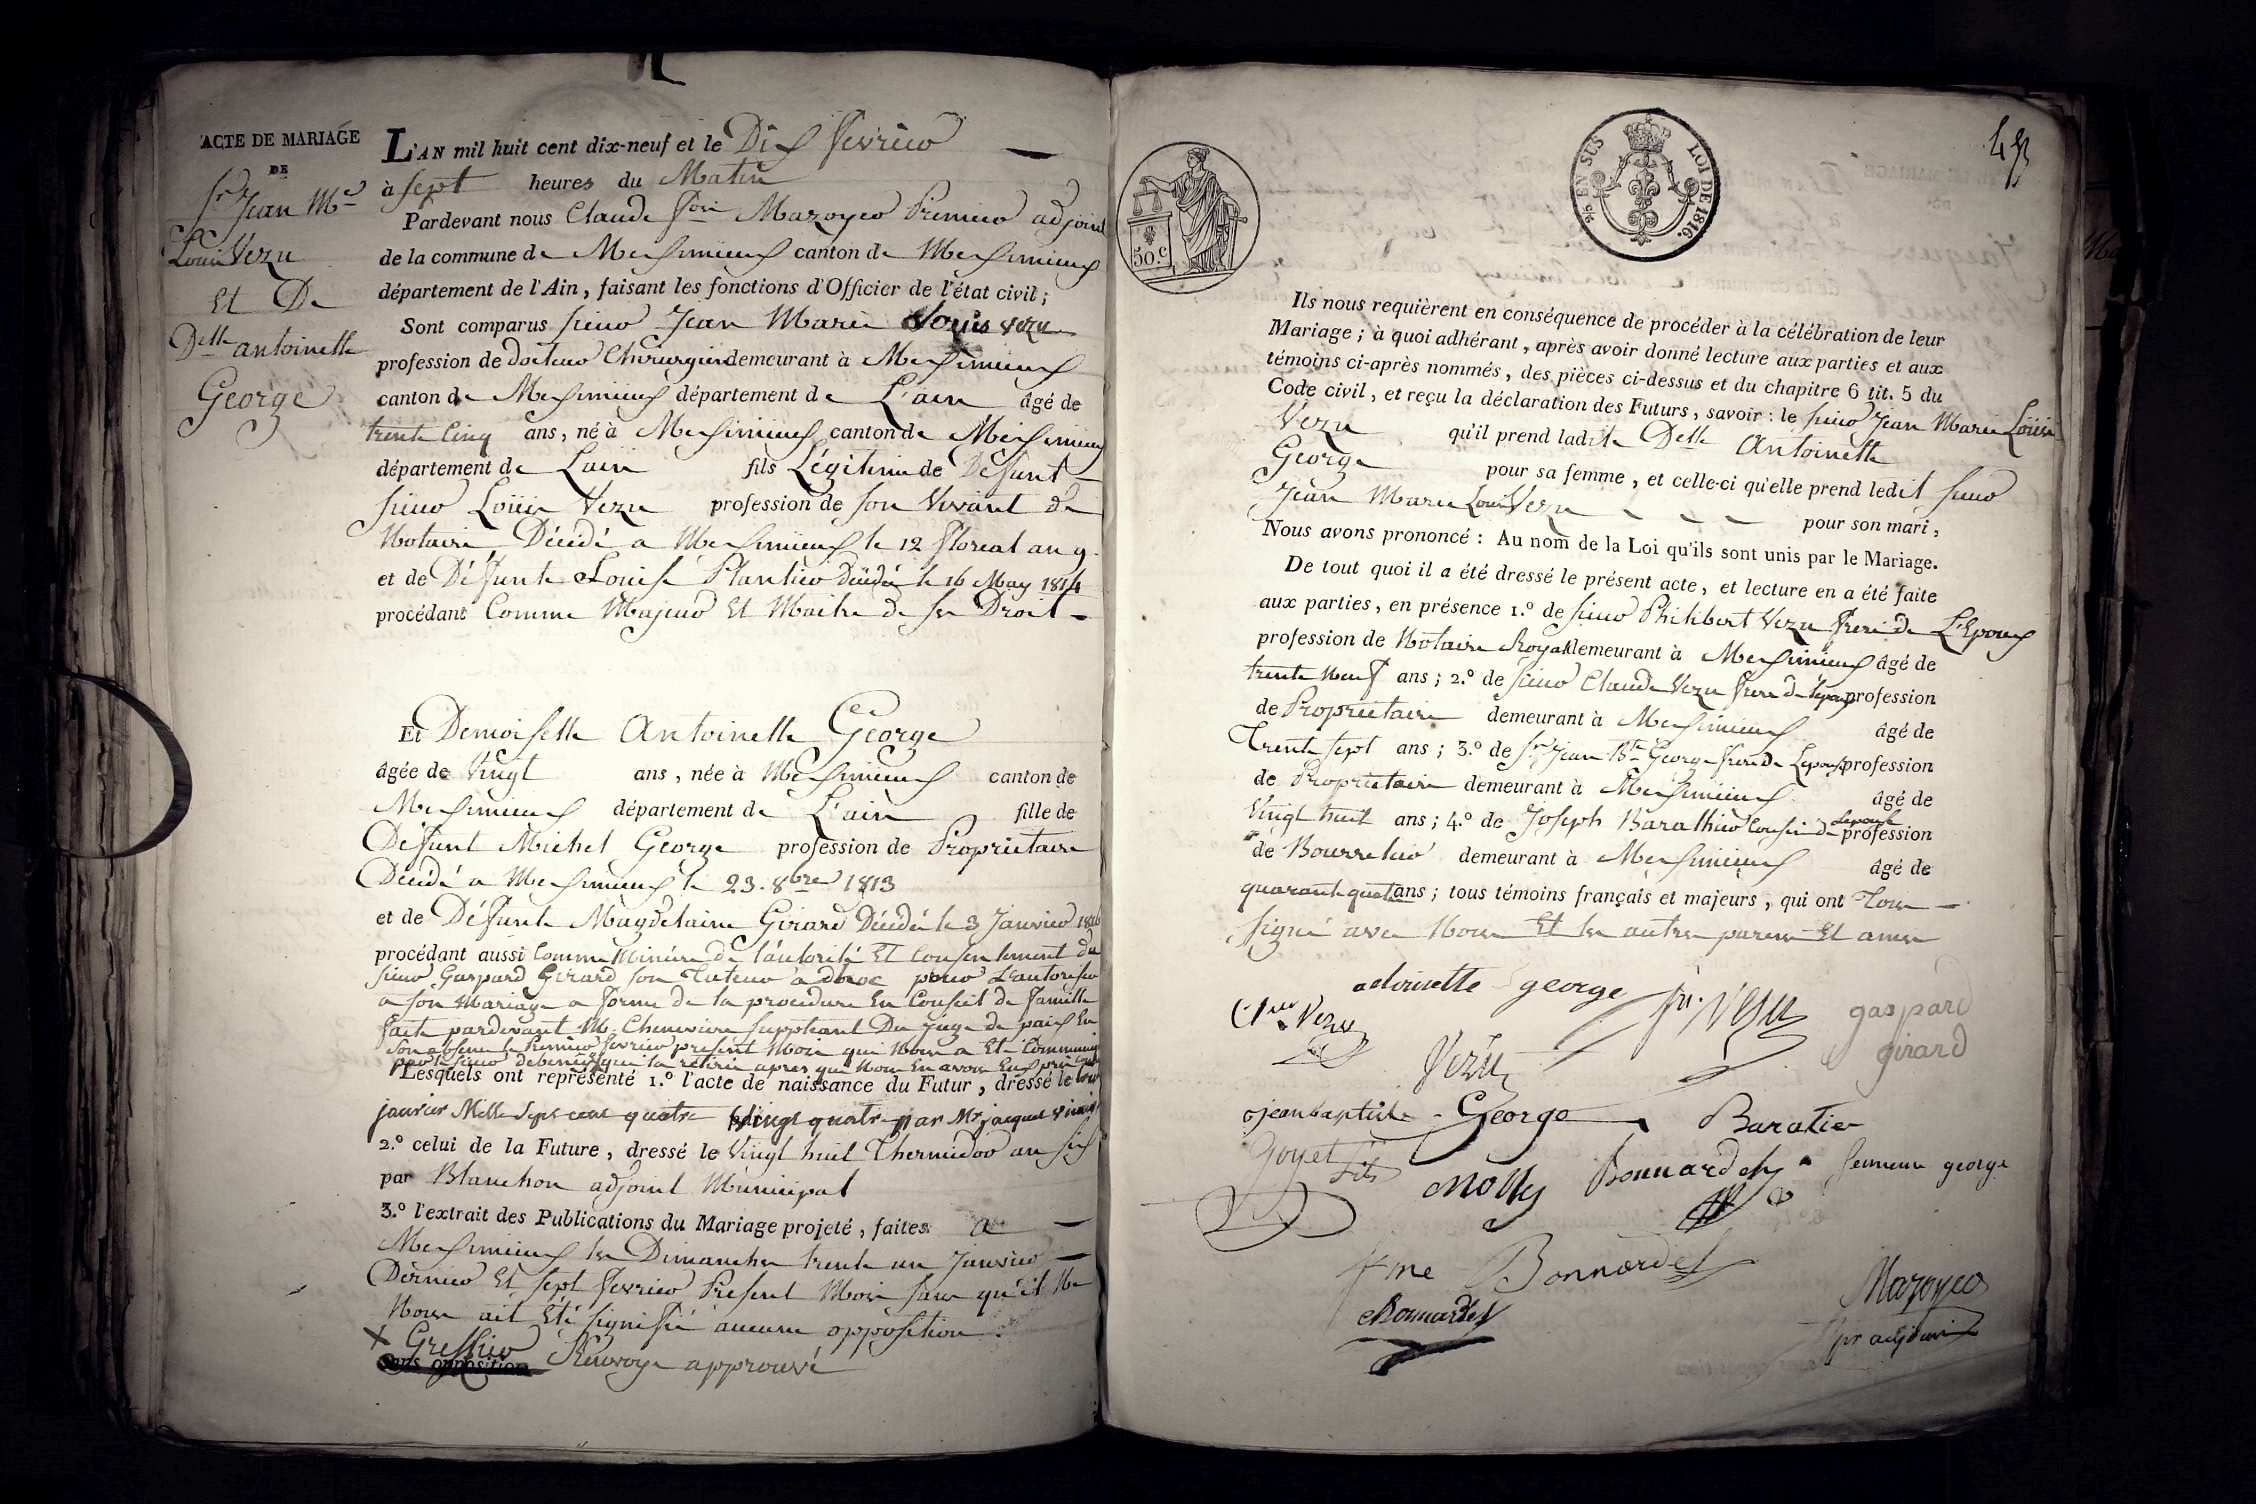 ACTE DE MARIAGE
DE
Sr Jean Me
Louis Vezu
Et De
Delle antoinette
George
L'AN mil huit cent dix-neuf et le Dix fevrier
à sept heures du Matin
Pardevant nous Claude Mazoyer Premier adjoint
de la commune de Messimieux canton de Messimieux
département de l'Ain, faisant les fonctions d'Officier de l'état civil;
Sont comparus sieur Jean Marie Louis vezu
profession de docteur Chirurgien demeurant à Messimieux
canton de Messimieux département de L'ain âgé de
trente cinq ans, né à Messimieux canton de Messimieux
département de Lain fils Légitime de Défunt
sieur Louis Vezu profession de son Vivant de
Notaire, Décédé a Messimieux le 12 floreal an 9.
et de Défunte Louise Plantier décédée le 16 May 1814
procédant Comme Majeur Et Maitre de ses Droit
Et Demoiselle Antoinette George
âgée de Vingt ans, née à Messimieux canton de
Messimieux département de L'ain fille de
Défunt Michel George profession de Proprietaire
Décédé a Messimieux le 23. 8bre 1813
et de Défunte Magdelaine Girard Décédée le 3 Janvier 1816
procédant aussi Comme Mineure de l'autorité Et consentement du
sieur Gaspard Girard son Tuteur a dhoc pour L'autoriser
a son Mariage a forme de la procedure En Conseil de famille
faite pardevant M. Chenevière suppleant Du juge de paix En
son absence le Premier fevrier present Mois qui Nous a Eté Communiqué
par le sieur qui la retirée apres que Nous En avons Eus pris
Lesquels ont représenté 1.º l'acte de naissance du Futur, dressé le trois
janvier Mille Sept cent quatre vingt quatre par Mr jacquet
2.º celui de la Future, dressé le Vingt huit Thermidor an six
par Blanchon adjoint Municipal
3.º l'extrait des Publications du Mariage projeté, faites a
Messimieux les Dimanches trente un Janvier
Dernier Et sept fevrier Present Mois sans qu'il Ne
Nous ait Eté signifié aucune opposition.
x Greffier Renvoye approuvé
sans opposition
50.c
5/10 EN SUS
LOI DE 1816.
Ils nous requièrent en conséquence de procéder à la célébration de leur
Mariage; à quoi adhérant, après avoir donné lecture aux parties et aux
témoins ci-après nommés, des pièces ci-dessus et du chapitre 6 tit. 5 du
Code civil, et reçu la déclaration des Futurs, savoir: le sieur Jean Marie Louis
Vezu qu'il prend ladite Delle Antoinette
George pour sa femme, et celle-ci qu'elle prend ledit sieur
Jean Marie Louis Vezu pour son mari,
Nous avons prononcé: Au nom de la Loi qu'ils sont unis par le Mariage.
De tout quoi il a été dressé le présent acte, et lecture en a été faite
aux parties, en présence 1.º de sieur Philibert Vezu frere de L'Epoux
profession de Notaire Royal demeurant à Messimieux âgé de
trente neuf ans; 2.º de sieur Claude Vezu frere de lepoux profession
de Proprietaire demeurant à Messimieux âgé de
Trente sept ans; 3.º de Sr Jean Bte George frere de Lepouse profession
de Proprietaire demeurant à Messimieux âgé de
Vingt huit ans; 4.º de Joseph Barathier Cousin de Lepouse profession
de Bourrelier demeurant à Messimieux âgé de
quarante quatre ans; tous témoins français et majeurs, qui ont Tous
signé avec Nous Et les autres parens Et amis
antoinette george
Vezu
gaspard
girard
Cl Vezu
Vezu
jean baptiste George
Baratier
Goyet
fils
Bonnardel
femme george
fme Bonnardel
Bonnardel
Mazoyer
pr adjoint